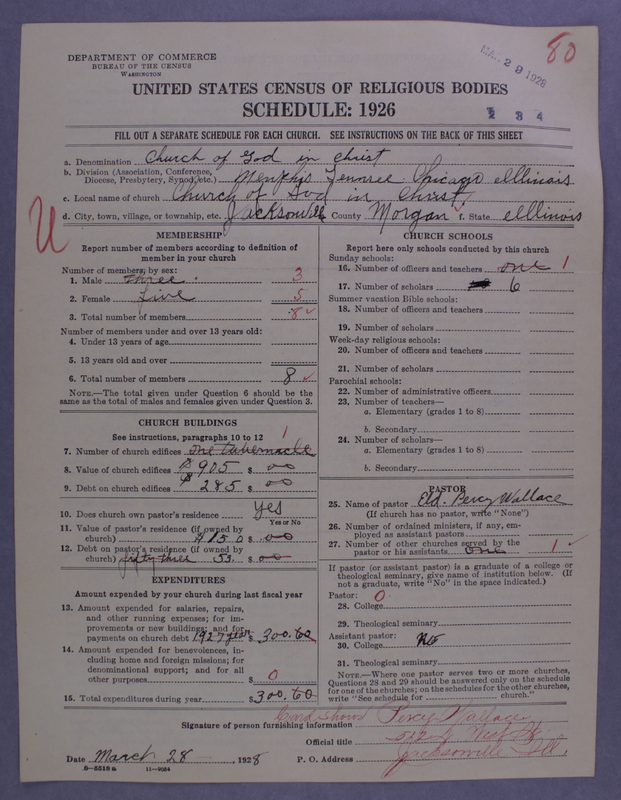 80
MAR 29 1928
DEPARTMENT OF COMMERCE
BUREAU OF THE CENSUS
WASHINGTON
UNITED STATES CENSUS OF RELIGIOUS BODIES
SCHEDULE: 1926
2 3 4
FILL OUT A SEPARATE SCHEDULE FOR EACH CHURCH. SEE INSTRUCTIONS ON THE BACK OF THIS SHEET
a. Denomination Church of God in Christ
b. Division (Association, Conference, Diocese, Presbytery, Synod, etc.) Memphis Tennessee Chicago Illinois
c. Local name of church Church of God in Christ
d. City, town, village, or township, etc. Jacksonville County Morgan f. State Illinois
U
MEMBERSHIP
Report number of members according to definition of
member in your church
Number of members, by sex:
1. Male three 3
2. Female five 5
3. Total number of members 8
Number of members under and over 13 years old:
4. Under 13 years of age
5. 13 years old and over
6. Total number of members 8
NOTE.—The total given under Question 6 should be the
same as the total of males and females given under Question 3.
CHURCH BUILDINGS
See instructions, paragraphs 10 to 12
1
7. Number of church edifices one tabernacle
8. Value of church edifices $905 $ 00
9. Debt on church edifices $285 $ 00
10. Does church own pastor's residence yes
Yes or No
11. Value of pastor's residence (if owned by
church) $150 $ 00
12. Debt on pastor's residence (if owned by
church) fifty three 53 $ 00
EXPENDITURES
Amount expended by your church during last fiscal year
13. Amount expended for salaries, repairs,
and other running expenses; for im-
provements or new buildings; and for
payments on church debt 1927 year $ 300.60
14. Amount expended for benevolences, in-
cluding home and foreign missions; for
denominational support; and for all
other purposes $ 0
15. Total expenditures during year $ 300.60
CHURCH SCHOOLS
Report here only schools conducted by this church
Sunday schools:
16. Number of officers and teachers one 1
17. Number of scholars 6
Summer vacation Bible schools:
18. Number of officers and teachers
19. Number of scholars
Week-day religious schools:
20. Number of officers and teachers
21. Number of scholars
Parochial schools:
22. Number of administrative officers
23. Number of teachers—
a. Elementary (grades 1 to 8)
b. Secondary
24. Number of scholars—
a. Elementary (grades 1 to 8)
b. Secondary
PASTOR
25. Name of pastor Eld. Percy Wallace
(If church has no pastor, write "None")
26. Number of ordained ministers, if any, em-
ployed as assistant pastors
27. Number of other churches served by the
pastor or his assistants one 1
If pastor (or assistant pastor) is a graduate of a college or
theological seminary, give name of institution below. (If
not a graduate, write "No" in the space indicated.)
Pastor: 0
28. College
29. Theological seminary
Assistant pastor:
30. College No
31. Theological seminary
NOTE.—Where one pastor serves two or more churches,
Questions 28 and 29 should be answered only on the schedule
for one of the churches; on the schedules for the other churches,
write "See schedule for church."
Card shows Percy Wallace
Signature of person furnishing information
Official title
West St
Date March 28, 1928 P. O. Address Jacksonville Ill.
8—5518a 11—9024